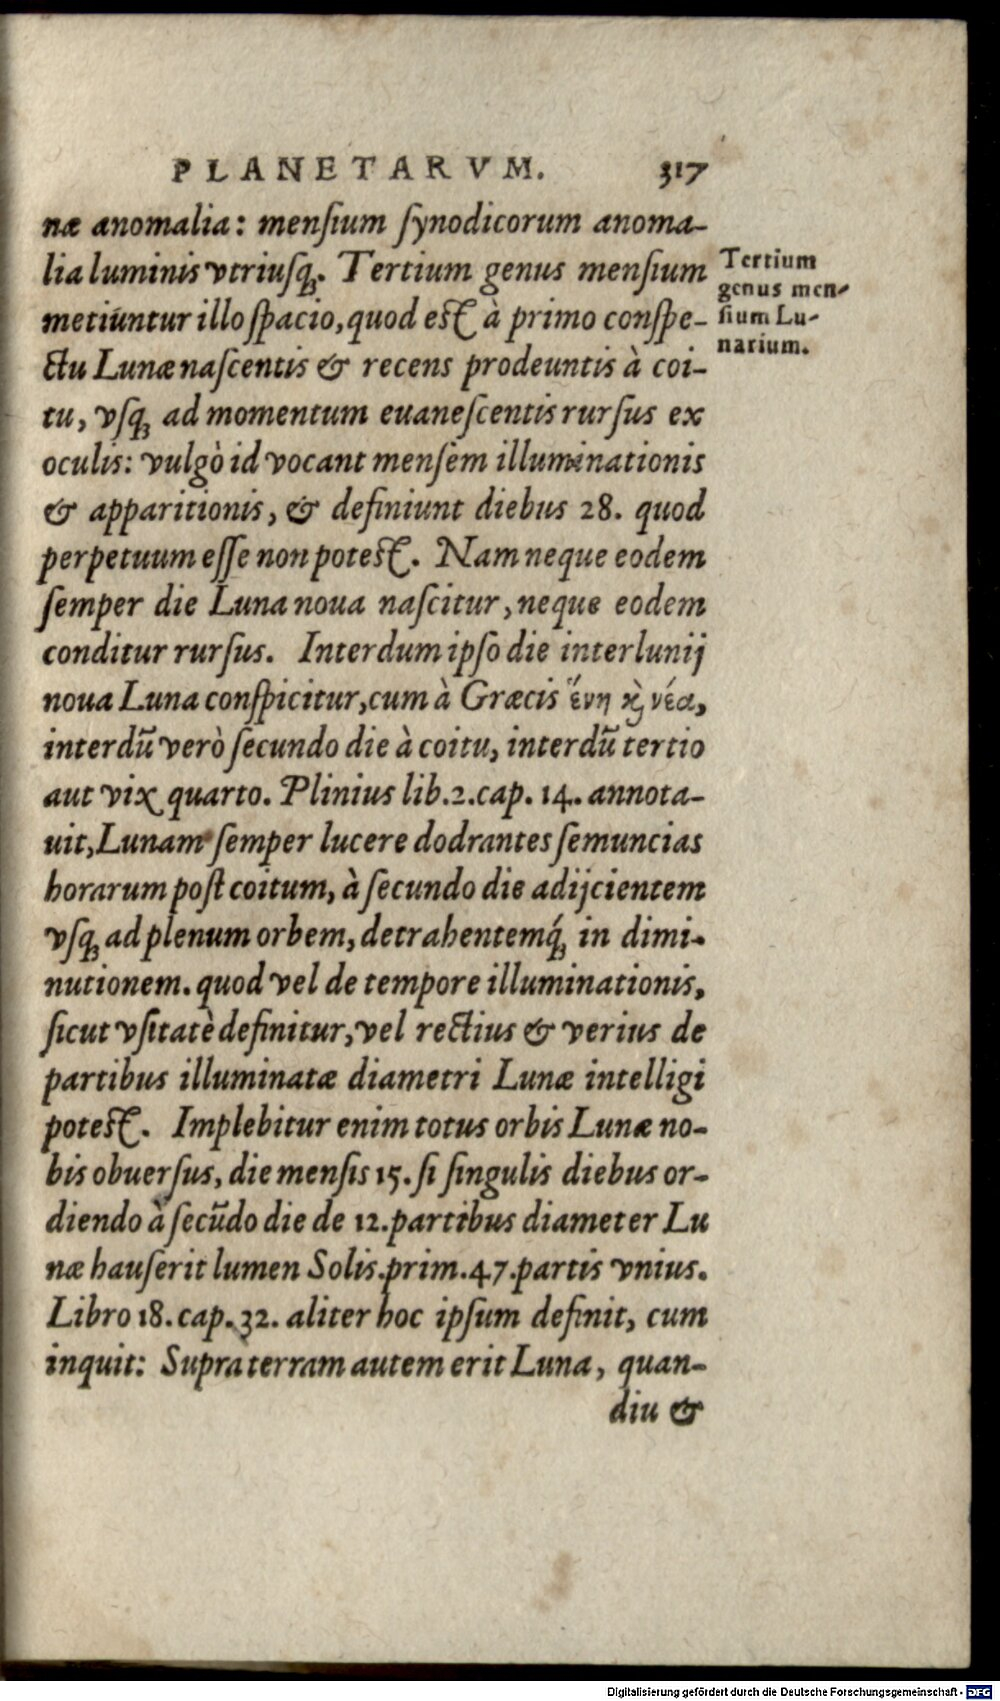 PLANETARVM. 317
næ anomalia: menſium ſynodicorum anoma-
lia luminis vtriuſq́ꝫ. Tertium genus menſium
metiuntur illo ſpacio, quod eſt à primo conſpe-
ctu Lunæ naſcentis & recens prodeuntis à coi-
tu, vſqꝫ ad momentum euaneſcentis rurſus ex
oculis: vulgò id vocant menſem illuminationis
& apparitionis, & definiunt diebus 28. quod
perpetuum eſſe non poteſt. Nam neque eodem
ſemper die Luna noua naſcitur, neque eodem
conditur rurſus. Interdum ipſo die interlunij
noua Luna conſpicitur, cum à Græcis ἕνη ϗ̀ νέα,
interdũ verò ſecundo die à coitu, interdũ tertio
aut vix quarto. Plinius lib.2.cap. 14. annota-
uit, Lunam ſemper lucere dodrantes ſemuncias
horarum poſt coitum, à ſecundo die adijcientem
vſqꝫ ad plenum orbem, detrahentemq́ꝫ in dimi-
nutionem. quod vel de tempore illuminationis,
ſicut vſitatè definitur, vel rectius & verius de
partibus illuminatæ diametri Lunæ intelligi
poteſt. Implebitur enim totus orbis Lunæ no-
bis obuerſus, die menſis 15. ſi ſingulis diebus or-
diendo à ſecũdo die de 12. partibus diameter Lu
næ hauſerit lumen Solis.prim.47.partis vnius.
Libro 18. cap. 32. aliter hoc ipſum definit, cum
inquit: Supra terram autem erit Luna, quan-
diu &
Tertium
genus men-
ſium Lu-
narium.
Digitalisierung gefördert durch die Deutsche Forschungsgemeinschaft - DFG